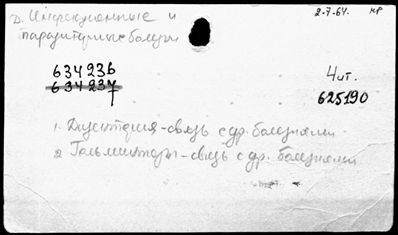 D. Инфекционные и
паразитарные болезни
2-7-64. кр
634236
634237
7
4 ит.
625190
1. Дизентерия - связь с др. болезнями
2. Гельминтозы - связь с др. болезнями